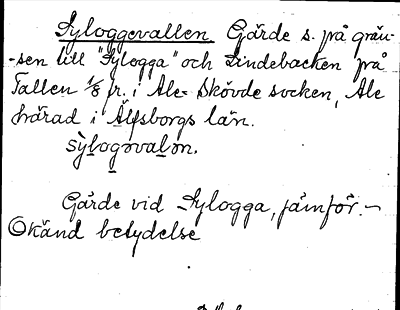 Syloggevallen Gärde s. på grän-
-sen till "Sylogga" och Lindebacken på
Tallen 1/8 fr. i Ale-Skövde socken, Ale
härad i Älfsborgs län.
sylogɔvalɔn.
Gärde vid Sylogga, jämför. –
Okänd betydelse